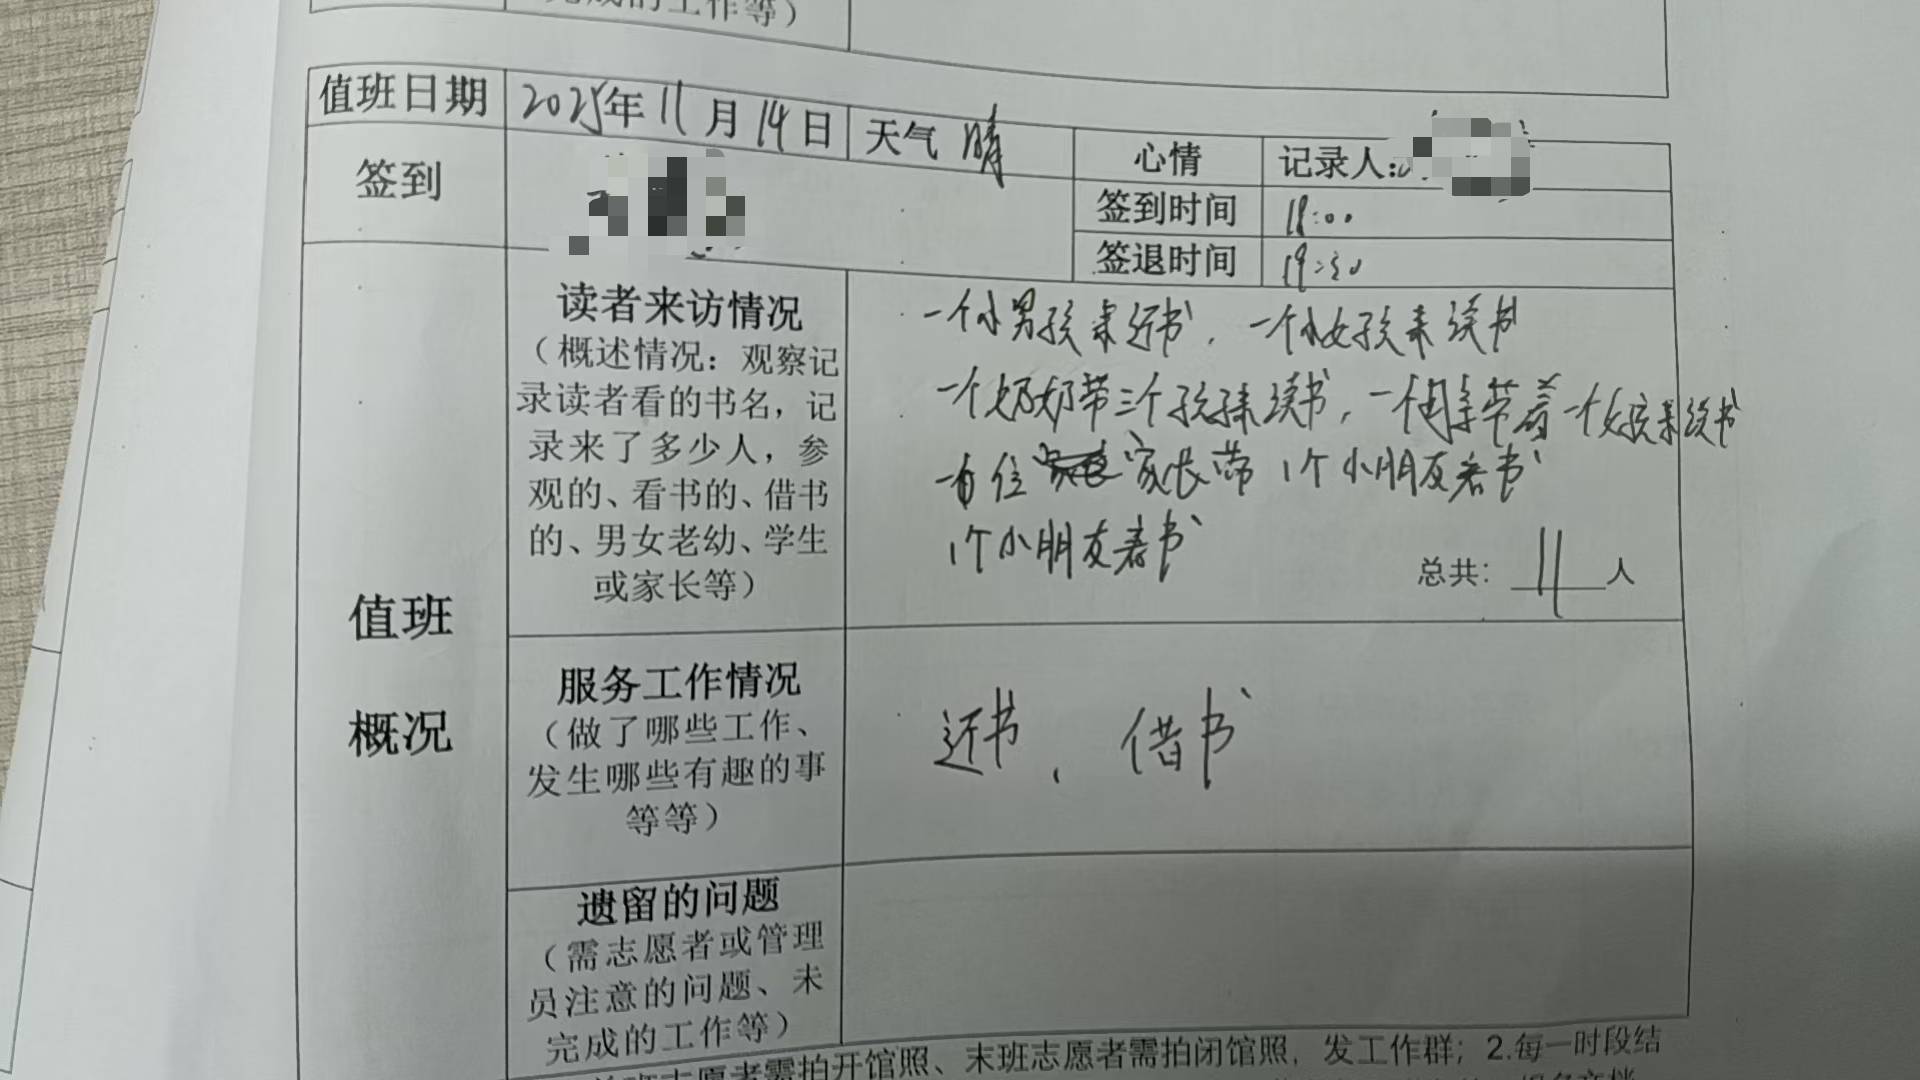 完成的工作等）
值班日期 2025年11月14日 天气 晴
心情 记录人:
签到
签到时间 18:00
签退时间 19:30
值班
概况
读者来访情况
（概述情况：观察记
录读者看的书名，记
录来了多少人，参
观的、看书的、借书
的、男女老幼、学生
或家长等）
一个小男孩来还书，一个小女孩来读书
一个奶奶带三个孩子来读书，一个母亲带着一个女孩来读书
一位家长带1个小朋友看书
1个小朋友看书
总共：11人
服务工作情况
（做了哪些工作、
发生哪些有趣的事
等等）
还书、借书
遗留的问题
（需志愿者或管理
员注意的问题、未
完成的工作等）
班志愿者需拍开馆照、末班志愿者需拍闭馆照，发工作群；2.每一时段结